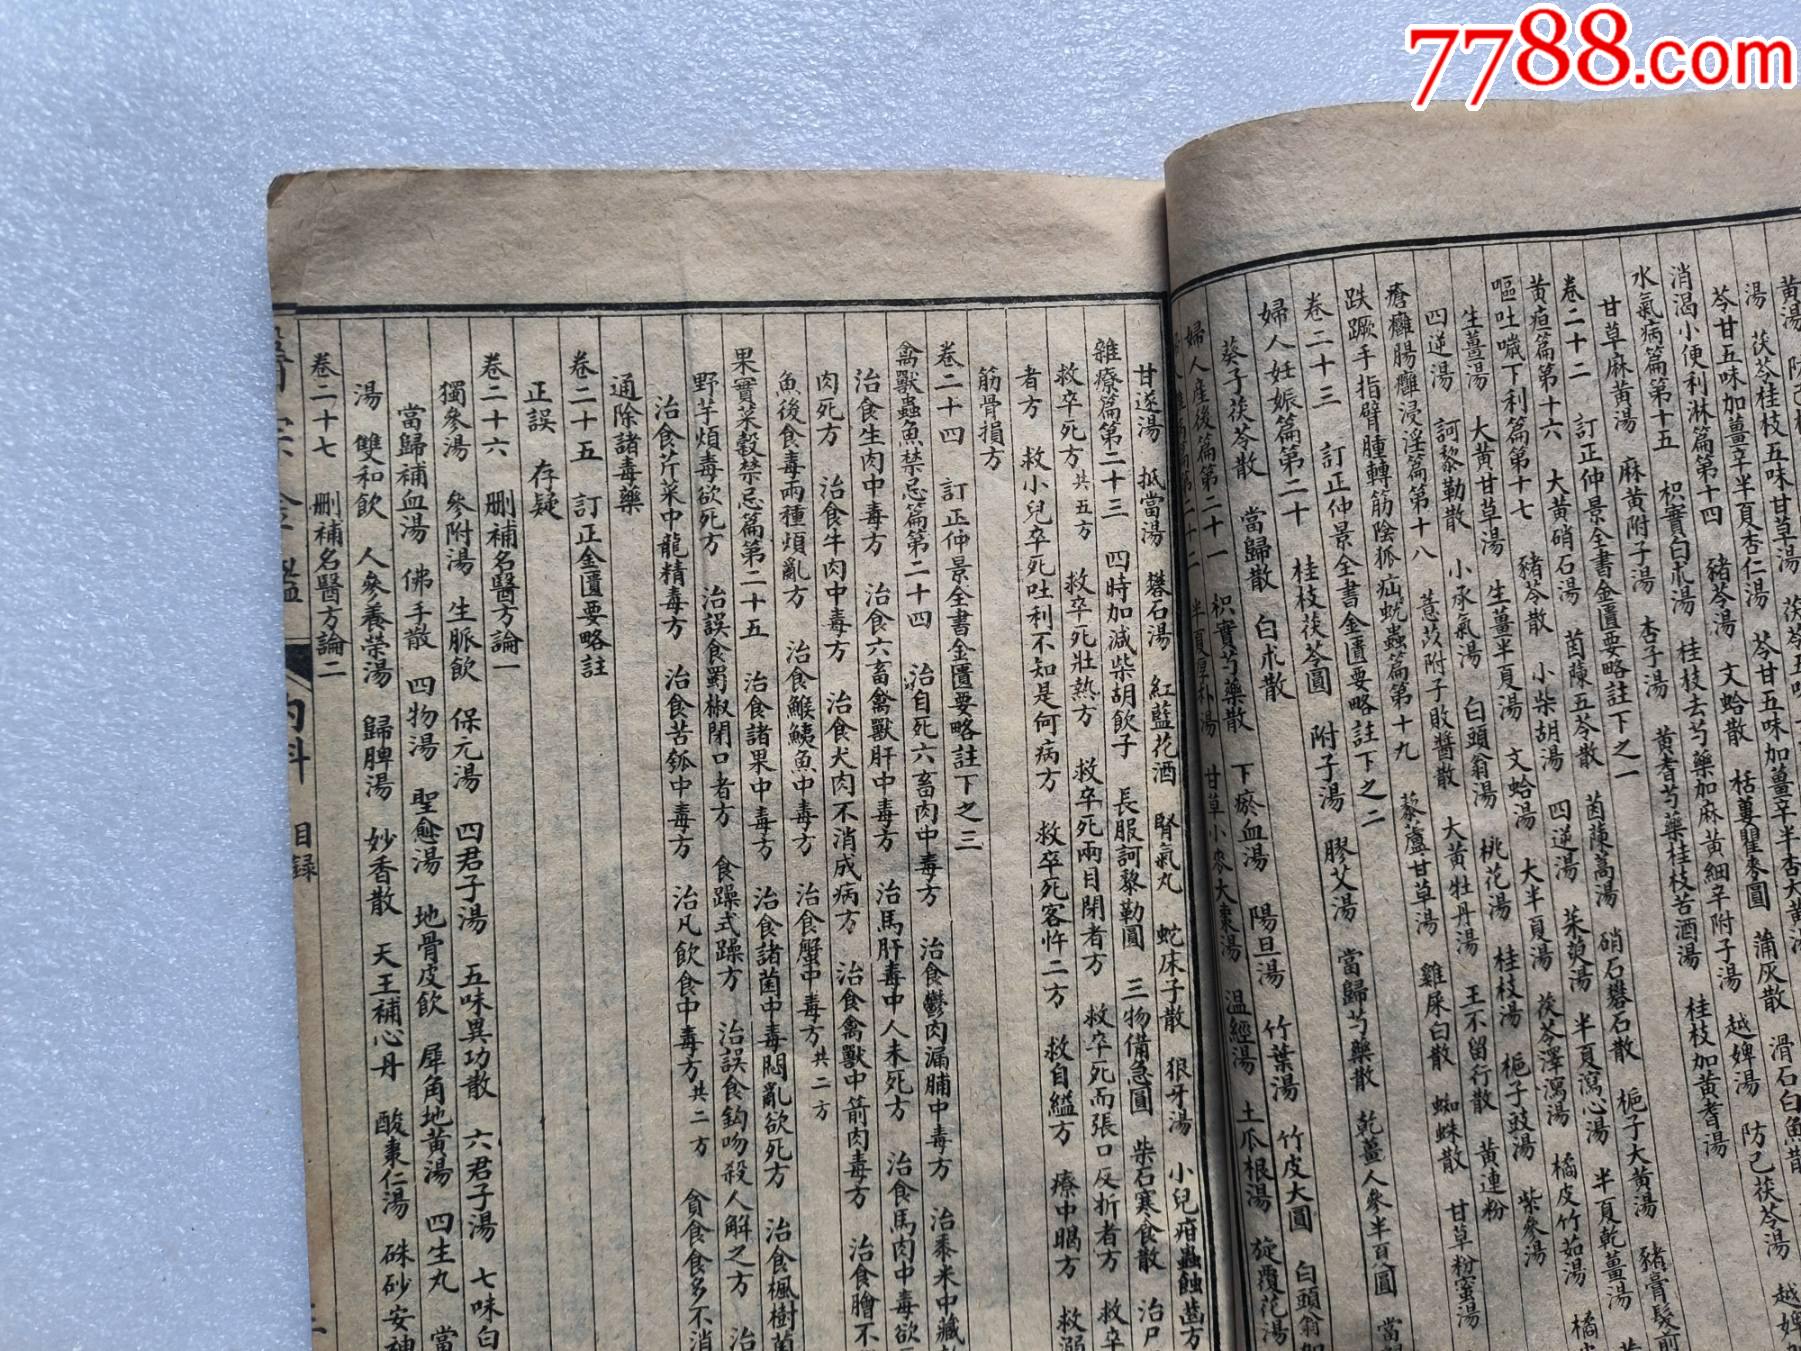 7788.com
黃湯 防己
湯 茯苓桂枝五味甘草湯 茯苓五味
苓甘五味加薑辛半夏杏仁湯 苓甘五味加薑辛半杏大黃湯
消渴小便利淋篇第十四 豬苓湯 文蛤散 栝蔞瞿麥圓 蒲灰散 滑石白魚散
水氣病篇第十五 枳實白朮湯 桂枝去芍藥加麻黃細辛附子湯 越婢湯 防己茯苓湯 越婢
甘草麻黃湯 麻黃附子湯 杏子湯 黃耆芍藥桂枝苦酒湯 桂枝加黃耆湯
卷二十二 訂正仲景全書金匱要略註下之一
黃疸篇第十六 大黃硝石湯 茵陳五苓散 茵陳蒿湯 硝石礬石散 梔子大黃湯 豬膏髮煎
嘔吐噦下利篇第十七 豬苓散 小柴胡湯 四逆湯 茱萸湯 半夏瀉心湯 半夏乾薑湯
生薑湯 大黃甘草湯 生薑半夏湯 文蛤湯 大半夏湯 茯苓澤瀉湯 橘皮竹茹湯 橘
四逆湯 訶黎勒散 小承氣湯 白頭翁湯 桃花湯 桂枝湯 梔子豉湯 紫參湯
瘡癰腸癰浸淫篇第十八 薏苡附子敗醬散 大黃牡丹湯 王不留行散 黃連粉
趺蹶手指臂腫轉筋陰狐疝蚘蟲篇第十九 藜蘆甘草湯 雞屎白散 蜘蛛散 甘草粉蜜湯
卷二十三 訂正仲景全書金匱要略註下之二
婦人妊娠篇第二十 桂枝茯苓圓 附子湯 膠艾湯 當歸芍藥散 乾薑人參半夏圓 當
葵子茯苓散 當歸散 白朮散
婦人產後篇第二十一 枳實芍藥散 下瘀血湯 陽旦湯 竹葉湯 竹皮大圓 白頭翁加
半夏厚朴湯 甘草小麥大棗湯 溫經湯 土瓜根湯 旋覆花湯
甘遂湯 抵當湯 礬石湯 紅藍花酒 腎氣丸 蛇床子散 狼牙湯 小兒疳蟲蝕齒方
雜療篇第二十三 四時加減柴胡飲子 長服訶黎勒圓 三物備急圓 柴石寒食散 治尸
救卒死方共五方 救卒死壯熱方 救卒死兩目閉者方 救卒死而張口反折者方 救卒
者方 救小兒卒死吐利不知是何病方 救卒死客忤二方 救自縊方 療中暍方 救溺
筋骨損方
卷二十四 訂正仲景全書金匱要略註下之三
禽獸蟲魚禁忌篇第二十四 治自死六畜肉中毒方 治食鬱肉漏脯中毒方 治黍米中藏
治食生肉中毒方 治食六畜禽獸肝中毒方 治馬肝毒中人未死方 治食馬肉中毒欲
肉死方 治食牛肉中毒方 治食犬肉不消成病方 治食禽獸中箭肉毒方 治食膾不
魚後食毒兩種煩亂方 治食鯸鮧魚中毒方 治食蟹中毒方共二方
果實菜穀禁忌篇第二十五 治食諸果中毒方 治食諸菌中毒悶亂欲死方 治食楓樹菌
野芋煩毒欲死方 治誤食蜀椒閉口者方 食躁式躁方 治誤食鈎吻殺人解之方 治
治食芹菜中龍精毒方 治食苦瓠中毒方 治凡飲食中毒方共二方 貪食食多不消
通除諸毒藥
卷二十五 訂正金匱要略註
正誤 存疑
卷二十六 刪補名醫方論一
獨參湯 參附湯 生脈飲 保元湯 四君子湯 五味異功散 六君子湯 七味白
當歸補血湯 佛手散 四物湯 聖愈湯 地骨皮飲 犀角地黃湯 四生丸 當
湯 雙和飲 人參養榮湯 歸脾湯 妙香散 天王補心丹 酸棗仁湯 硃砂安神
卷二十七 刪補名醫方論二
醫宗金鑑 內科 目錄